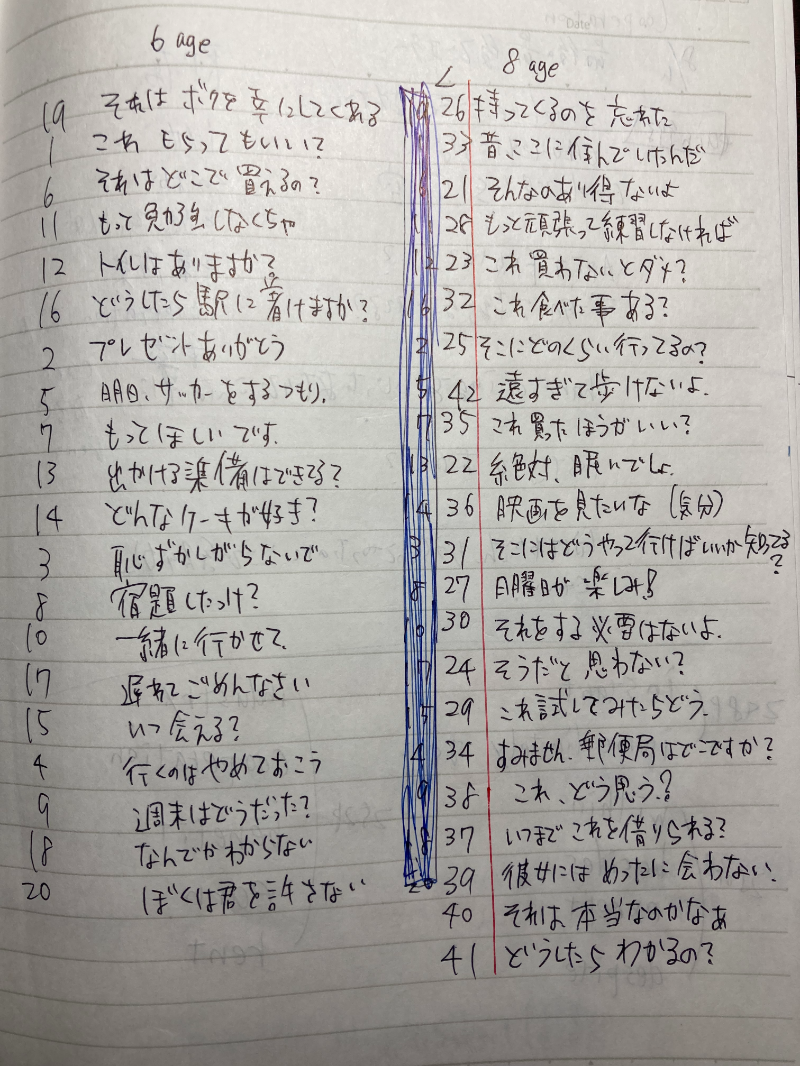 6 age
19 それは ボクを 幸にしてくれる
1 これ もらってもいい?
6 それはどこで 買えるの?
11 もって 勉強しなくちゃ
12 トイレはありますか?
16 どうしたら 駅に 着けますか?
2 プレゼント ありがとう
5 明日、サッカーをするつもり。
7 もってほしいです。
13 出かける準備はできてる?
14 どんなケーキが好き?
3 恥ずかしがらないで
8 宿題したっけ?
10 一緒に行かせて
17 遅れてごめんなさい
15 いつ会える?
4 行くのはやめておこう
9 週末はどうだった?
18 なんでかわからない
20 ぼくは君を許さない
8 age
26 持ってくるのを 忘れた
33 昔、ここに住んでいたんだ
21 そんなのあり得ないよ
28 もっと頑張って練習しなければ
23 これ買わないとダメ?
32 これ食べた事ある?
25 そこにどのくらい行ってるの?
42 遠すぎて歩けないよ。
35 これ買ったほうがいい?
22 絶対、眠いでしょ。
36 映画を見たいな (気分)
31 そこにはどうやって行けばいいか知ってる?
27 日曜日が 楽しみ!
30 それをする必要はないよ。
24 そうだと思わない?
29 これ試してみたらどう。
34 すみません、郵便局はどこですか?
38 これ、どう思う?
37 いつまでこれを借りられる?
39 彼女には めったに会わない。
40 それは本当なのかなぁ
41 どうしたら わかるの?